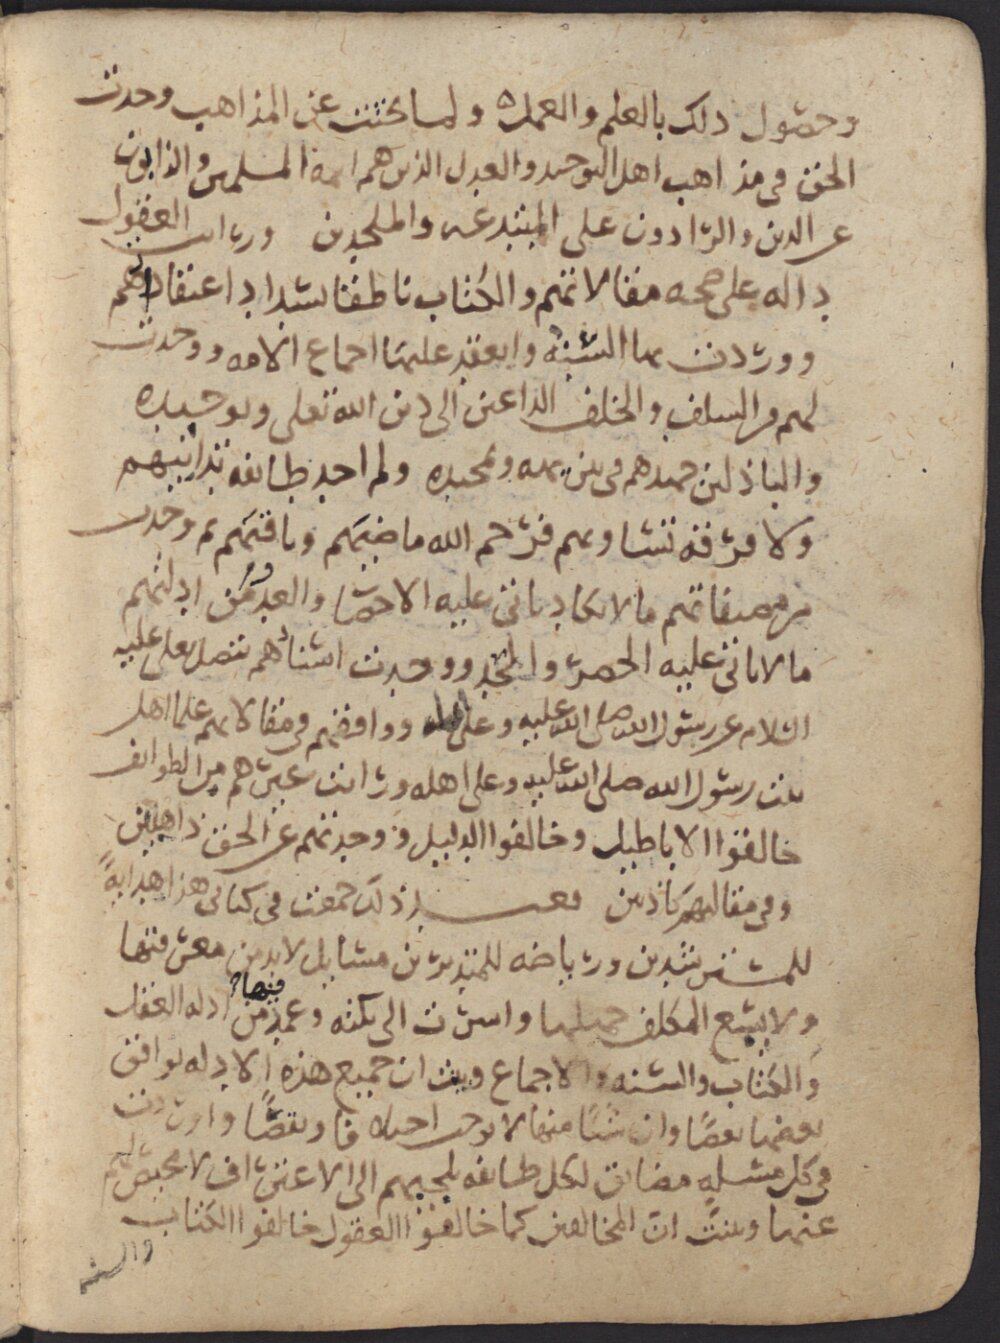 وحصول ذلك بالعلم والعمل ه ولما بحثت عن المذاهب وجدت
الحق في مذاهب اهل التوحيد والعدل الذين هم ائمة المسلمين والذابون
عن الدين والرادون على المبتدعه والملحدين ورايت العقول
داله على صحه مقالاتهم والكتاب ناطقا بسداد اعتقاداتهم
ووردت بها السنه وانعقد عليها اجماع الامه ووجدت
لهم من السلف والخلف الداعين الى دين الله تعلى وتوحيده
والباذلين جهدهم في تنزيهه وتمجيده ولم اجد طايفه تدانيهم
ولا فرقه تساويهم فرحم الله ماضيهم وباقيهم ثم وجدت
من مصنفاتهم ما لا يكاد ياتي عليه الاحصا والعد ومن ادلتهم
ما لا ياتي عليه الحصر والحد ووجدت اسنادهم تتصل بعلي عليه
السلام عن رسول الله صلى الله عليه وعلى اله ووافقهم في مقالاتهم علما اهل
بيت رسول الله صلى الله عليه وعلى اهله ورايت غيرهم من الطوايف
خالفوا الاباطيل وخالفوا الدليل ووجدتهم عن الحق ذاهبين
وفي مقالتهم كاذبين فعند ذلك جمعت في كتابي هذا هدايةً
للمسترشدين ورياضه للمتدبرين مسايل لا بد من معرفتها
ولا يسع المكلف جهلها واشرت الى نكته وعمد من ادله العقل
فيها
والكتاب والسنه والاجماع وبينت ان جميع هذه الادله يوافق
بعضها بعضا وان شيئا منها لا يوجب اختلافا ونقضا واوردت
في كل مسله مضايق لكل طايفه تلجيهم الى الاعتراف لا محيص لهم
عنها وبينت ان المخالفين كما خالفوا العقول خالفوا الكتاب
والسنه